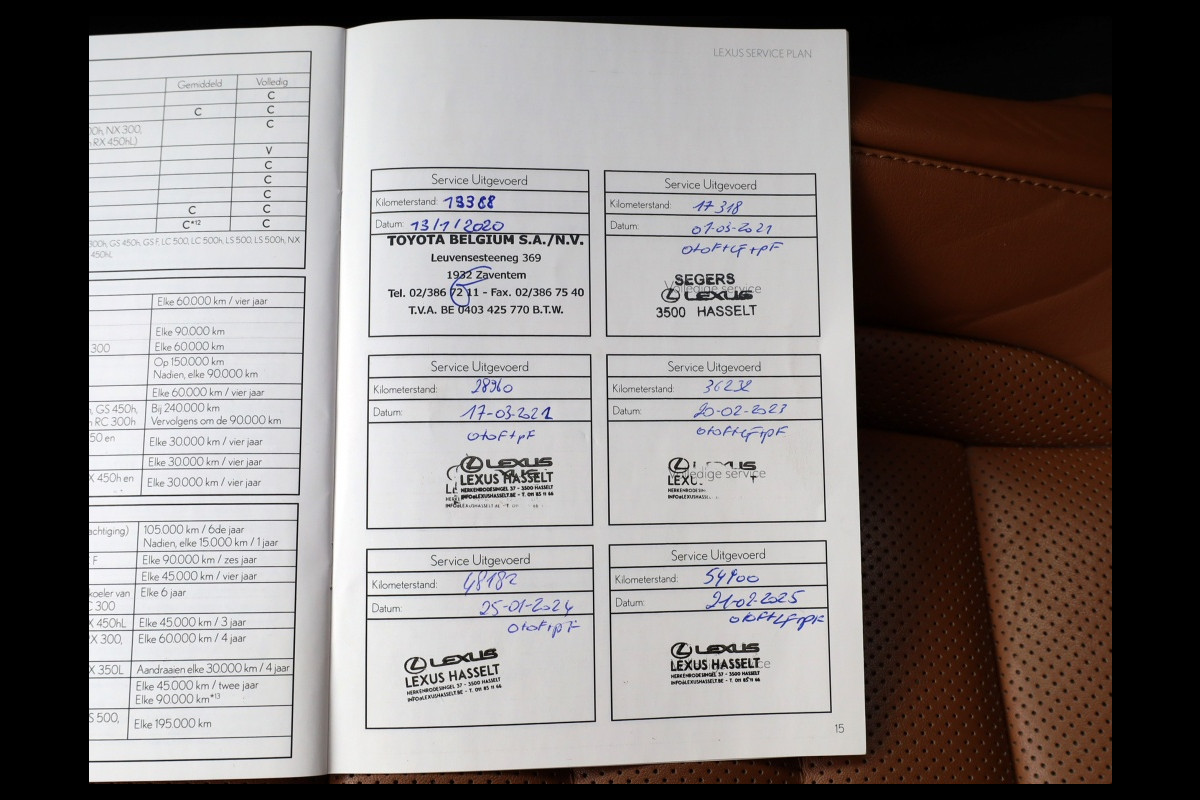 LEXUS SERVICE PLAN
Gemiddeld Volledig
C
C C
00h, NX 300, C
RX 450hL)
V
C
C
C
C C
C*12 C
300h, GS 450h, GS F, LC 500, LC 500h, LS 500, LS 500h, NX
450hL
Elke 60.000 km / vier jaar
Elke 90.000 km
300 Elke 60.000 km
Op 150.000 km
Nadien, elke 90.000 km
Elke 60.000 km / vier jaar
h, GS 450h, Bij 240.000 km
RC 300h Vervolgens om de 90.000 km
50 en Elke 30.000 km / vier jaar
Elke 30.000 km / vier jaar
X 450h en Elke 30.000 km / vier jaar
achtiging) 105.000 km / 6de jaar
Nadien, elke 15.000 km / 1 jaar
F Elke 90.000 km / zes jaar
Elke 45.000 km / vier jaar
koeler van Elke 6 jaar
C 300
X 450hL Elke 45.000 km / 3 jaar
RX 300, Elke 60.000 km / 4 jaar
X 350L Aandraaien elke 30.000 km / 4 jaar
Elke 45.000 km / twee jaar
Elke 90.000 km*13
S 500, Elke 195.000 km
Service Uitgevoerd
Kilometerstand: 13388
Datum: 13/1/2020
TOYOTA BELGIUM S.A./N.V.
Leuvensesteeneg 369
1932 Zaventem
Tel. 02/386 72 11 - Fax. 02/386 75 40
T.V.A. BE 0403 425 770 B.T.W.
Service Uitgevoerd
Kilometerstand: 17318
Datum: 01-03-2021
OtoF+LF+pF
SEGERS
Volledige service
LEXUS
3500 HASSELT
Service Uitgevoerd
Kilometerstand: 28960
Datum: 17-03-2021
OtoF+pF
LEXUS
LEXUS HASSELT
HERKENRODESINGEL 37 - 3500 HASSELT
INFO@LEXUSHASSELT.BE - T. 011 85 11 66
Service Uitgevoerd
Kilometerstand: 36232
Datum: 20-02-2023
OtoF+LF+pF
LEXUS
Volledige service
Service Uitgevoerd
Kilometerstand: 48182
Datum: 25-01-2024
OtoF+pF
LEXUS
LEXUS HASSELT
HERKENRODESINGEL 37 - 3500 HASSELT
INFO@LEXUSHASSELT.BE - T. 011 85 11 66
Service Uitgevoerd
Kilometerstand: 54900
Datum: 21-02-2025
OtoF+LF+pF
LEXUS
LEXUS HASSELT
HERKENRODESINGEL 37 - 3500 HASSELT
INFO@LEXUSHASSELT.BE - T. 011 85 11 66
15